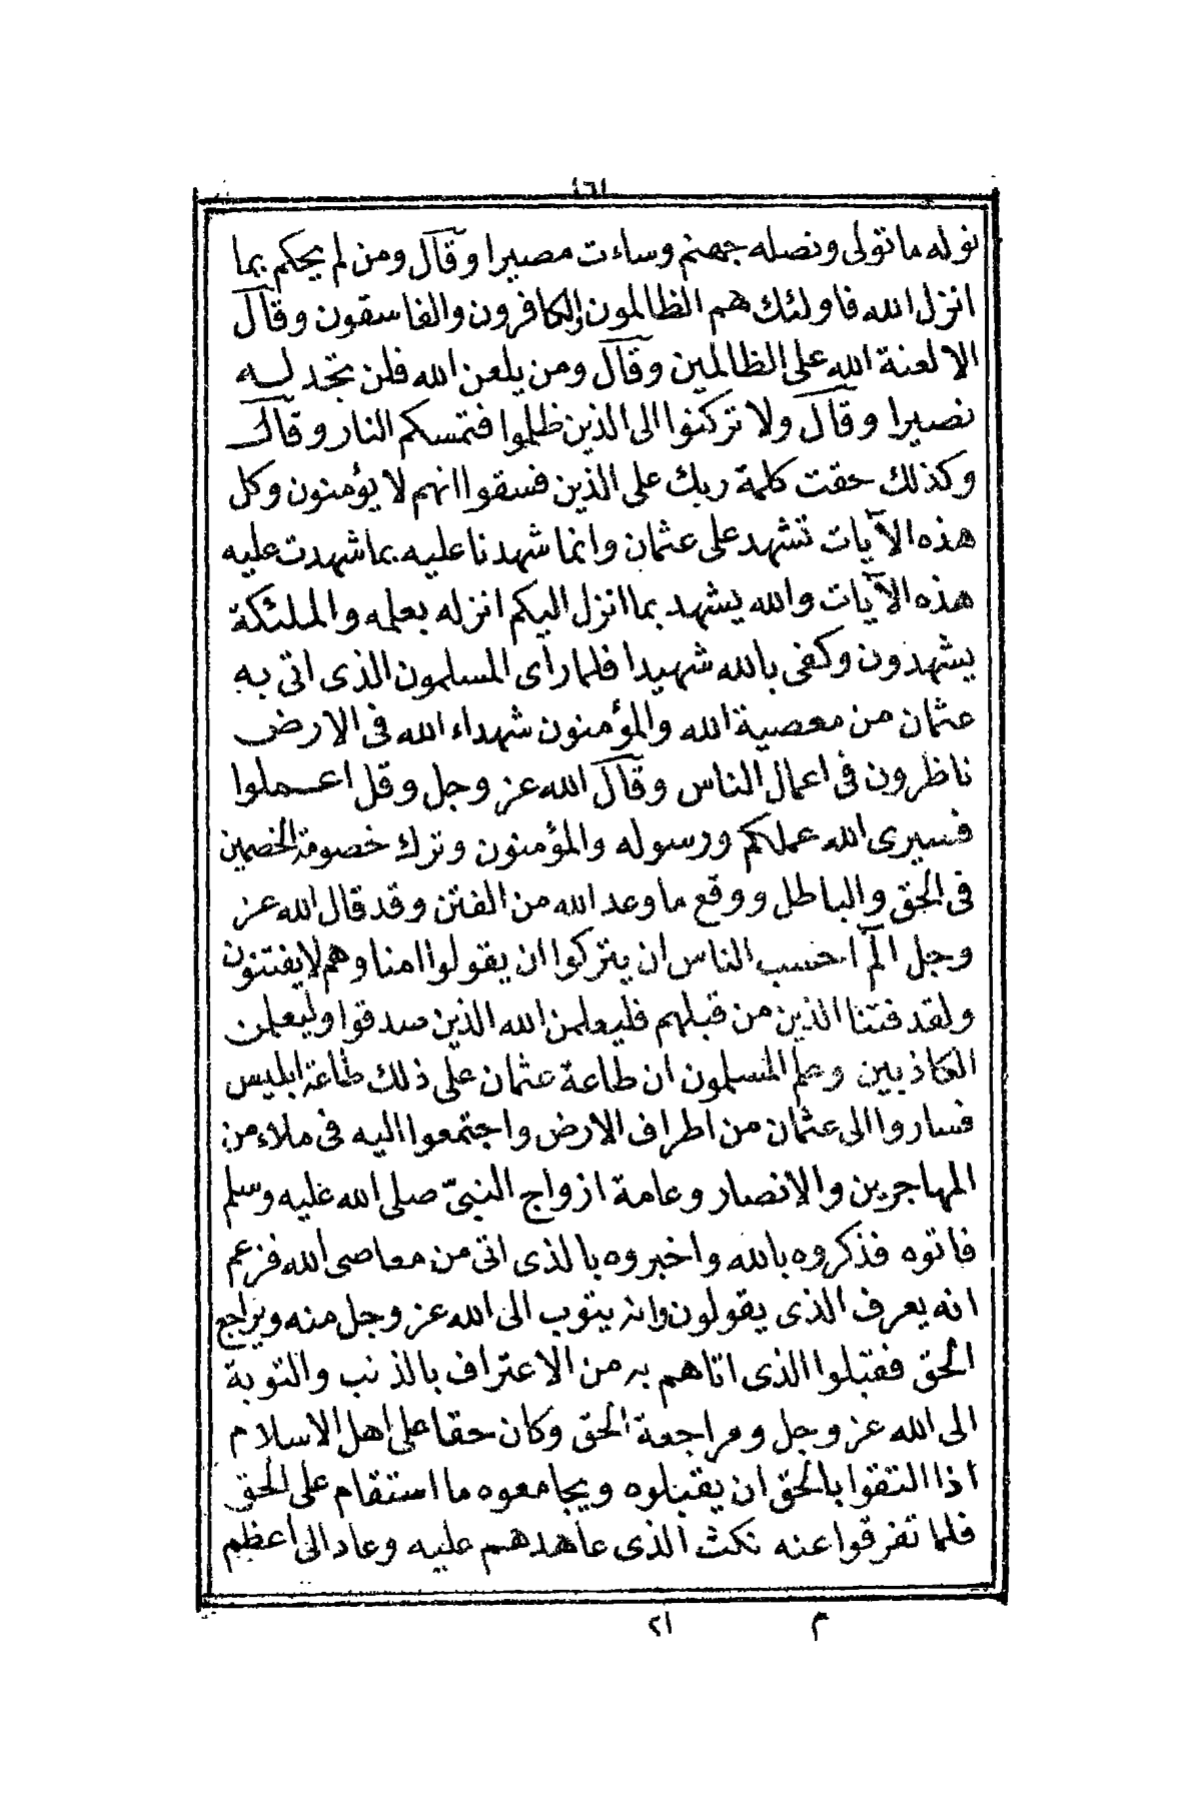 ١٦١
نوله ما تولى ونصله جهنم وساءت مصيرا وقال ومن لم يحكم بما
انزل الله فاولئك هم الظالمون والكافرون والفاسقون وقال
الا لعنة الله على الظالمين وقال ومن يلعن الله فلن تجد له
نصيرا وقال ولا تركنوا الى الذين ظلموا فتمسكم النار وقال
وكذلك حقت كلمة ربك على الذين فسقوا انهم لا يؤمنون وكل
هذه الآيات تشهد على عثمان وانما شهدنا عليه بما شهدت عليه
هذه الآيات والله يشهد بما انزل اليكم انزله بعلمه والملئكة
يشهدون وكفى بالله شهيدا فلما رأى المسلمون الذى اتى به
عثمان من معصية الله والمؤمنون شهداء الله فى الارض
ناظرون فى اعمال الناس وقال الله عز وجل وقل اعملوا
فسيرى الله عملكم ورسوله والمؤمنون وترك خصومة الخصمين
فى الحق والباطل ووقع ما وعد الله من الفتن وقد قال الله عز
وجل الم احسب الناس ان يتركوا ان يقولوا امنا وهم لا يفتنون
ولقد فتنا الذين من قبلهم فليعلمن الله الذين صدقوا وليعلمن
الكاذبين وعلم المسلمون ان طاعة عثمان على ذلك طاعة ابليس
فساروا الى عثمان من اطراف الارض واجتمعوا اليه فى ملاء من
المهاجرين والانصار وعامة ازواج النبىّ صلى الله عليه وسلم
فاتوه فذكروه بالله واخبروه بالذى اتى من معاصى الله فزعم
انه يعرف الذى يقولون وانه يتوب الى الله عز وجل منه ويراجع
الحق فقبلوا الذى اتاهم به من الاعتراف بالذنب والتوبة
الى الله عز وجل ومراجعة الحق وكان حقا على اهل الاسلام
اذا التقوا بالحق ان يقبلوه ويجامعوه ما استقام على الحق
فلما تفرقوا عنه نكث الذى عاهدهم عليه وعاد الى اعظم
م ٢١